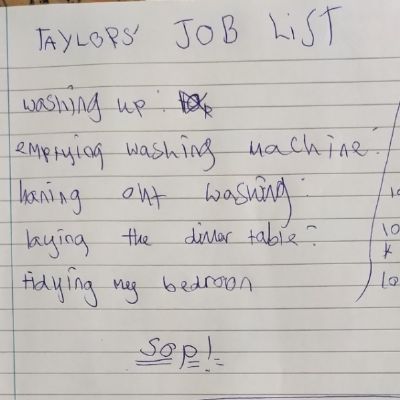 TAYLORS' JOB LIST
washing up:
emptying washing machine:
haning out washing:
laying the dinner table:
tidying my bedroon
10
10
Sop!